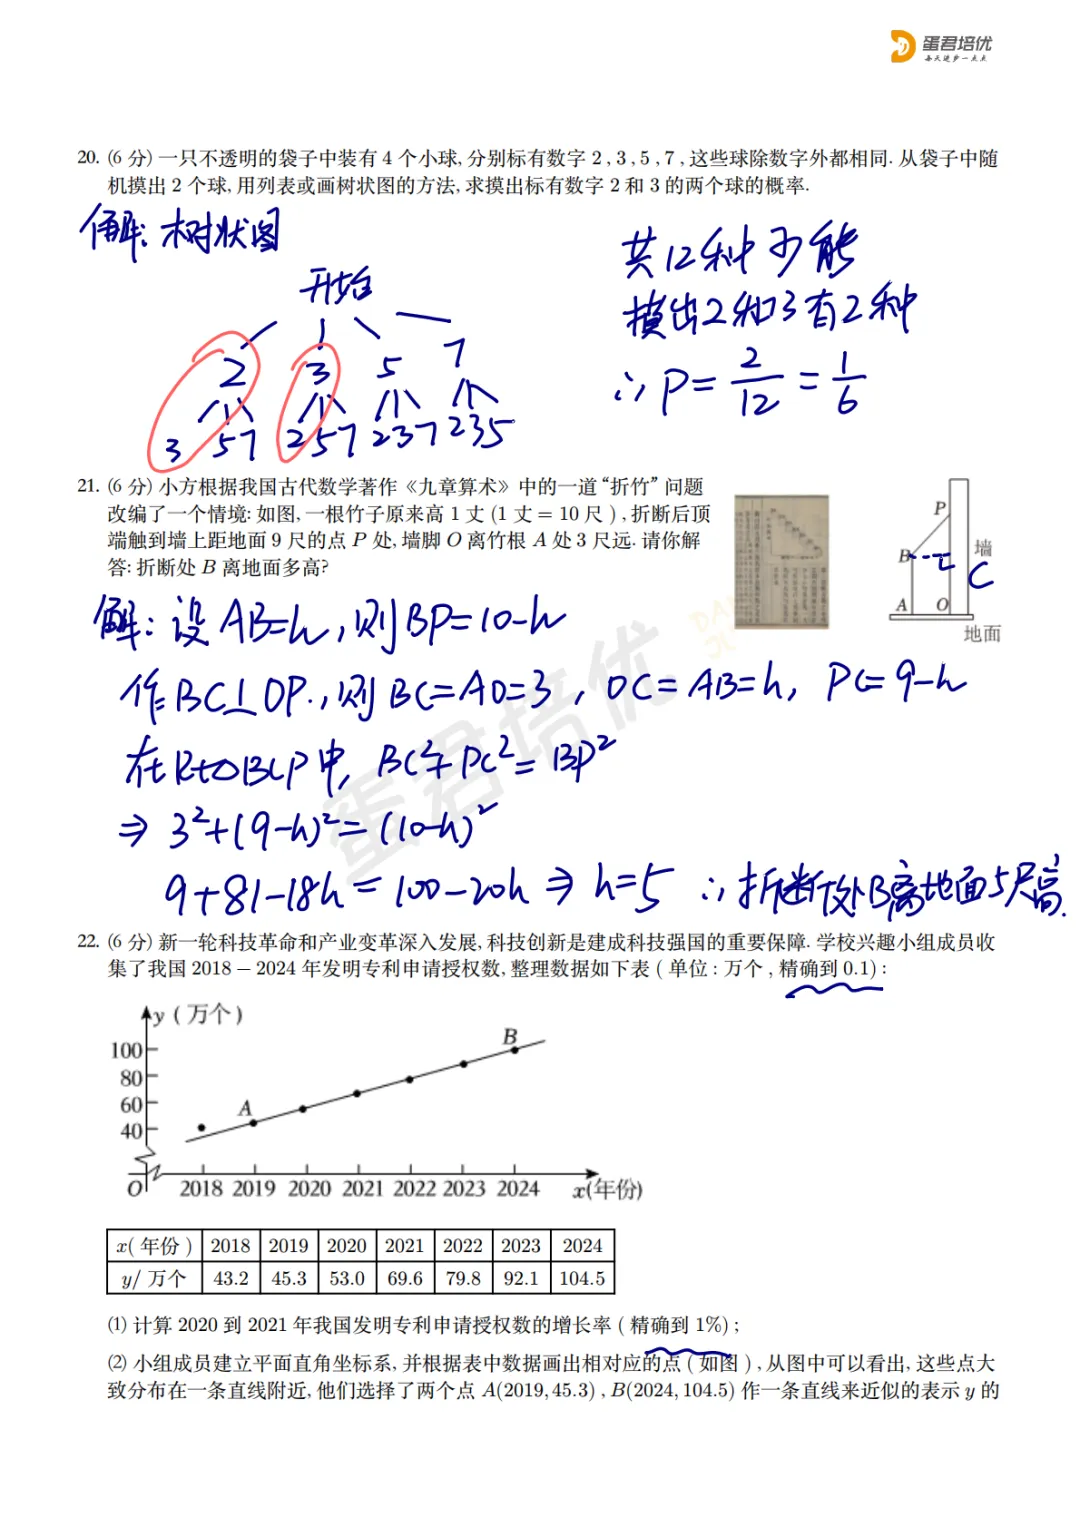 蛋君培优
每天进步一点点
20. (6 分) 一只不透明的袋子中装有 4 个小球, 分别标有数字 2 , 3 , 5 , 7 , 这些球除数字外都相同. 从袋子中随
机摸出 2 个球, 用列表或画树状图的方法, 求摸出标有数字 2 和 3 的两个球的概率.
解: 树状图
开始
2 3 5 7
3 5 7 2 5 7 2 3 7 2 3 5
共12种可能
摸出2和3有2种
∴ P = 2/12 = 1/6
21. (6 分) 小方根据我国古代数学著作《九章算术》中的一道“折竹”问题
改编了一个情境: 如图, 一根竹子原来高 1 丈 (1 丈 = 10 尺 ) , 折断后顶
端触到墙上距地面 9 尺的点 P 处, 墙脚 O 离竹根 A 处 3 尺远. 请你解
答: 折断处 B 离地面多高?
P
B
墙
C
A O
地面
解: 设 AB=h, 则 BP=10-h
作 BC⊥OP., 则 BC=AO=3 , OC=AB=h, PC=9-h
在 Rt△BCP 中, BC²+PC²=BP²
⇒ 3²+(9-h)²=(10-h)²
9+81-18h=100-20h ⇒ h=5 ∴ 折断处B离地面5尺高.
22. (6 分) 新一轮科技革命和产业变革深入发展, 科技创新是建成科技强国的重要保障. 学校兴趣小组成员收
集了我国 2018 − 2024 年发明专利申请授权数, 整理数据如下表 ( 单位 : 万个 , 精确到 0.1) :
y ( 万个 )
100
80
60
40
A
B
O 2018 2019 2020 2021 2022 2023 2024 x(年份)
x( 年份 ) 2018 2019 2020 2021 2022 2023 2024
y/ 万个 43.2 45.3 53.0 69.6 79.8 92.1 104.5
⑴ 计算 2020 到 2021 年我国发明专利申请授权数的增长率 ( 精确到 1%) ;
⑵ 小组成员建立平面直角坐标系, 并根据表中数据画出相对应的点 ( 如图 ) , 从图中可以看出, 这些点大
致分布在一条直线附近, 他们选择了两个点 A(2019, 45.3) , B(2024, 104.5) 作一条直线来近似的表示 y 的
蛋君培优